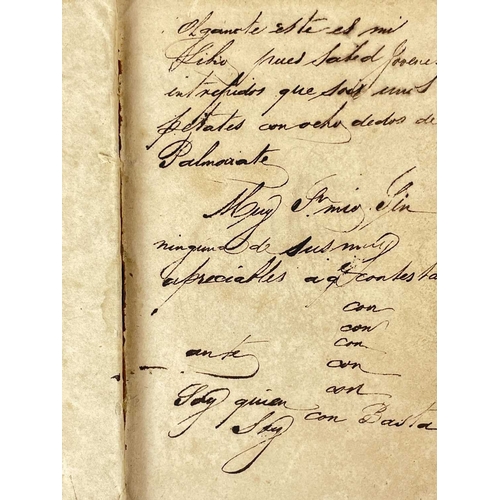 este es mi
pues sabed Jovene
intrepidos que sois unos
petates con ocho dedos de
Muy Sr mio. Sin
ninguna de sus muy
apreciables a qe contesta
con
con
con
ante con
con
Soy quien con Basta
Soy